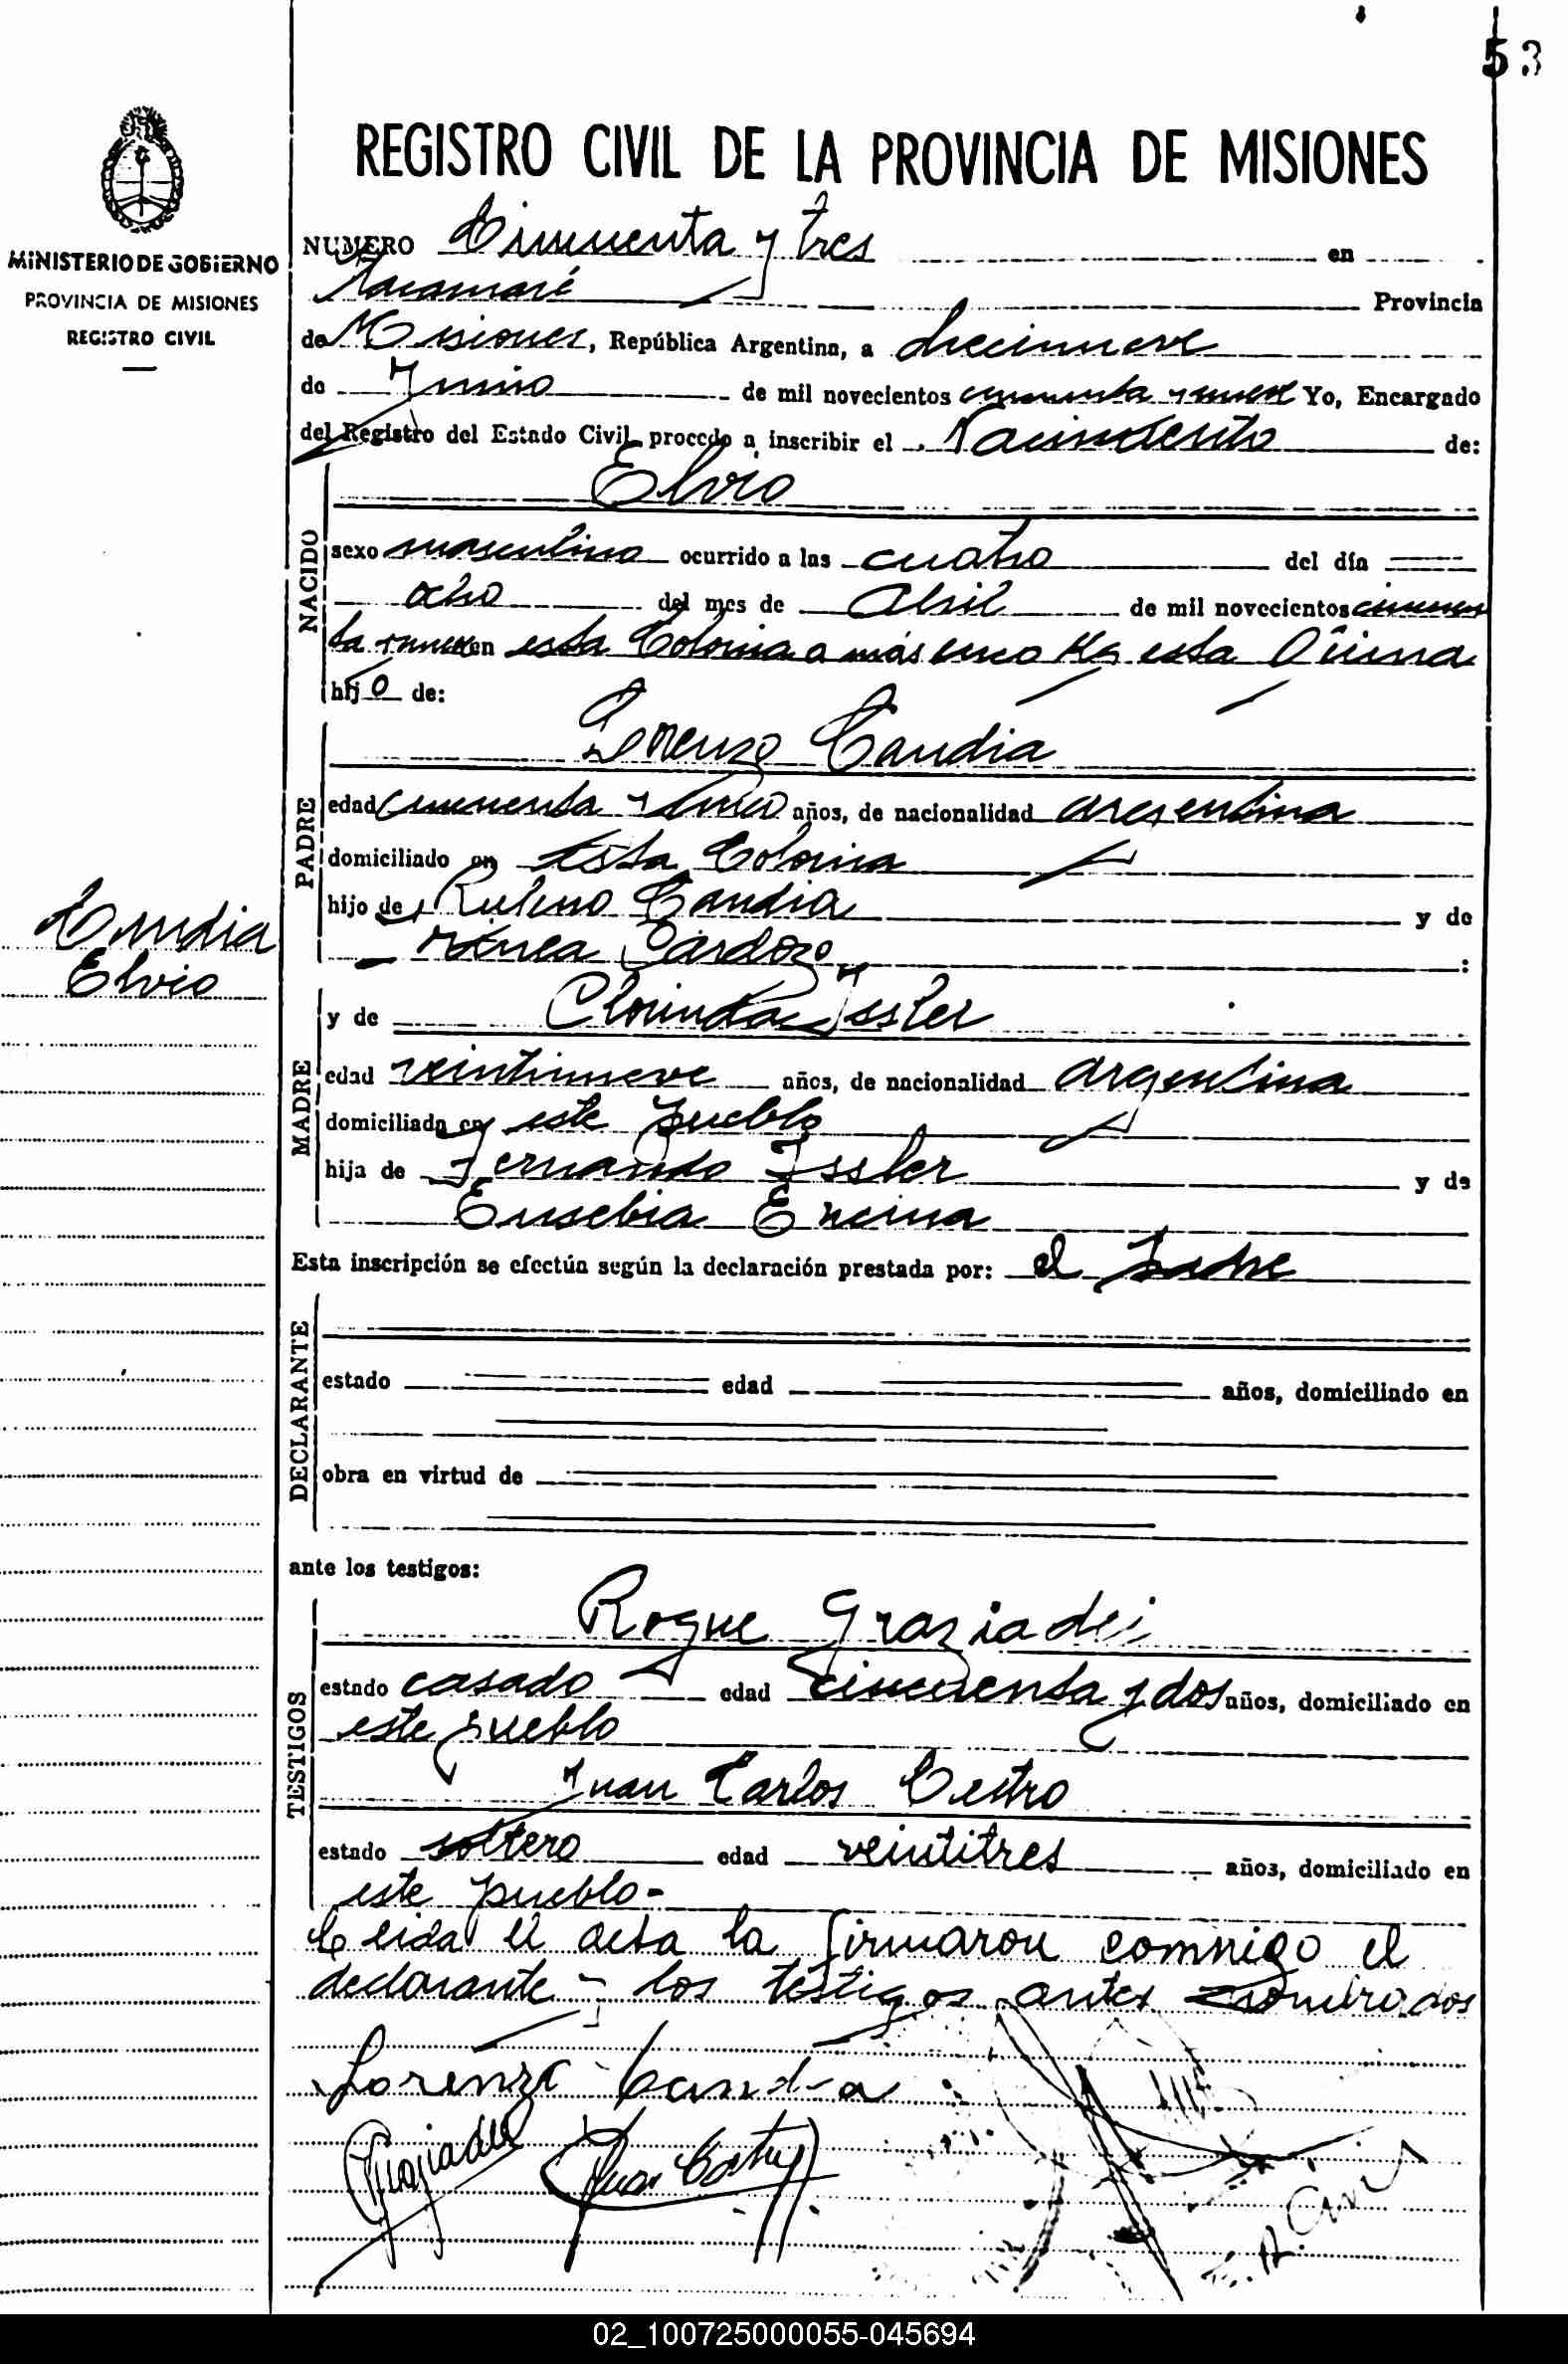 53
REGISTRO CIVIL DE LA PROVINCIA DE MISIONES
MINISTERIO DE GOBIERNO
PROVINCIA DE MISIONES
REGISTRO CIVIL
NUMERO Cincuenta y tres en
Provincia
de Misiones, República Argentina, a diecinueve
de Junio de mil novecientos cincuenta y nueve Yo, Encargado
del Registro del Estado Civil, procedo a inscribir el Nacimiento de:
Elvio
NACIDO
sexo masculino ocurrido a las cuatro del día
ocho del mes de Abril de mil novecientos cincuen
ta y nueve en esta Colonia a más esta
hijo de:
Lorenzo Candia
PADRE
edad cincuenta y cinco años, de nacionalidad argentina
domiciliado en esta Colonia
hijo de Candia y de
Cardozo
Candia
Elvio
y de Clorinda Issler
MADRE
edad veintinueve años, de nacionalidad argentina
domiciliada en este pueblo
hija de Fernando Issler y de
Eusebia Encina
Esta inscripción se efectúa según la declaración prestada por: el Padre
DECLARANTE
estado edad años, domiciliado en
obra en virtud de
ante los testigos:
Roque Graziadei
TESTIGOS
estado casado edad cincuenta y dos años, domiciliado en
este pueblo
Juan Carlos
estado soltero edad veintitres años, domiciliado en
este pueblo-
Leida el acta la firmaron commigo el
declarante y los testigos antes nombrados
Lorenzo Candia
Graziadei
02_100725000055-045694